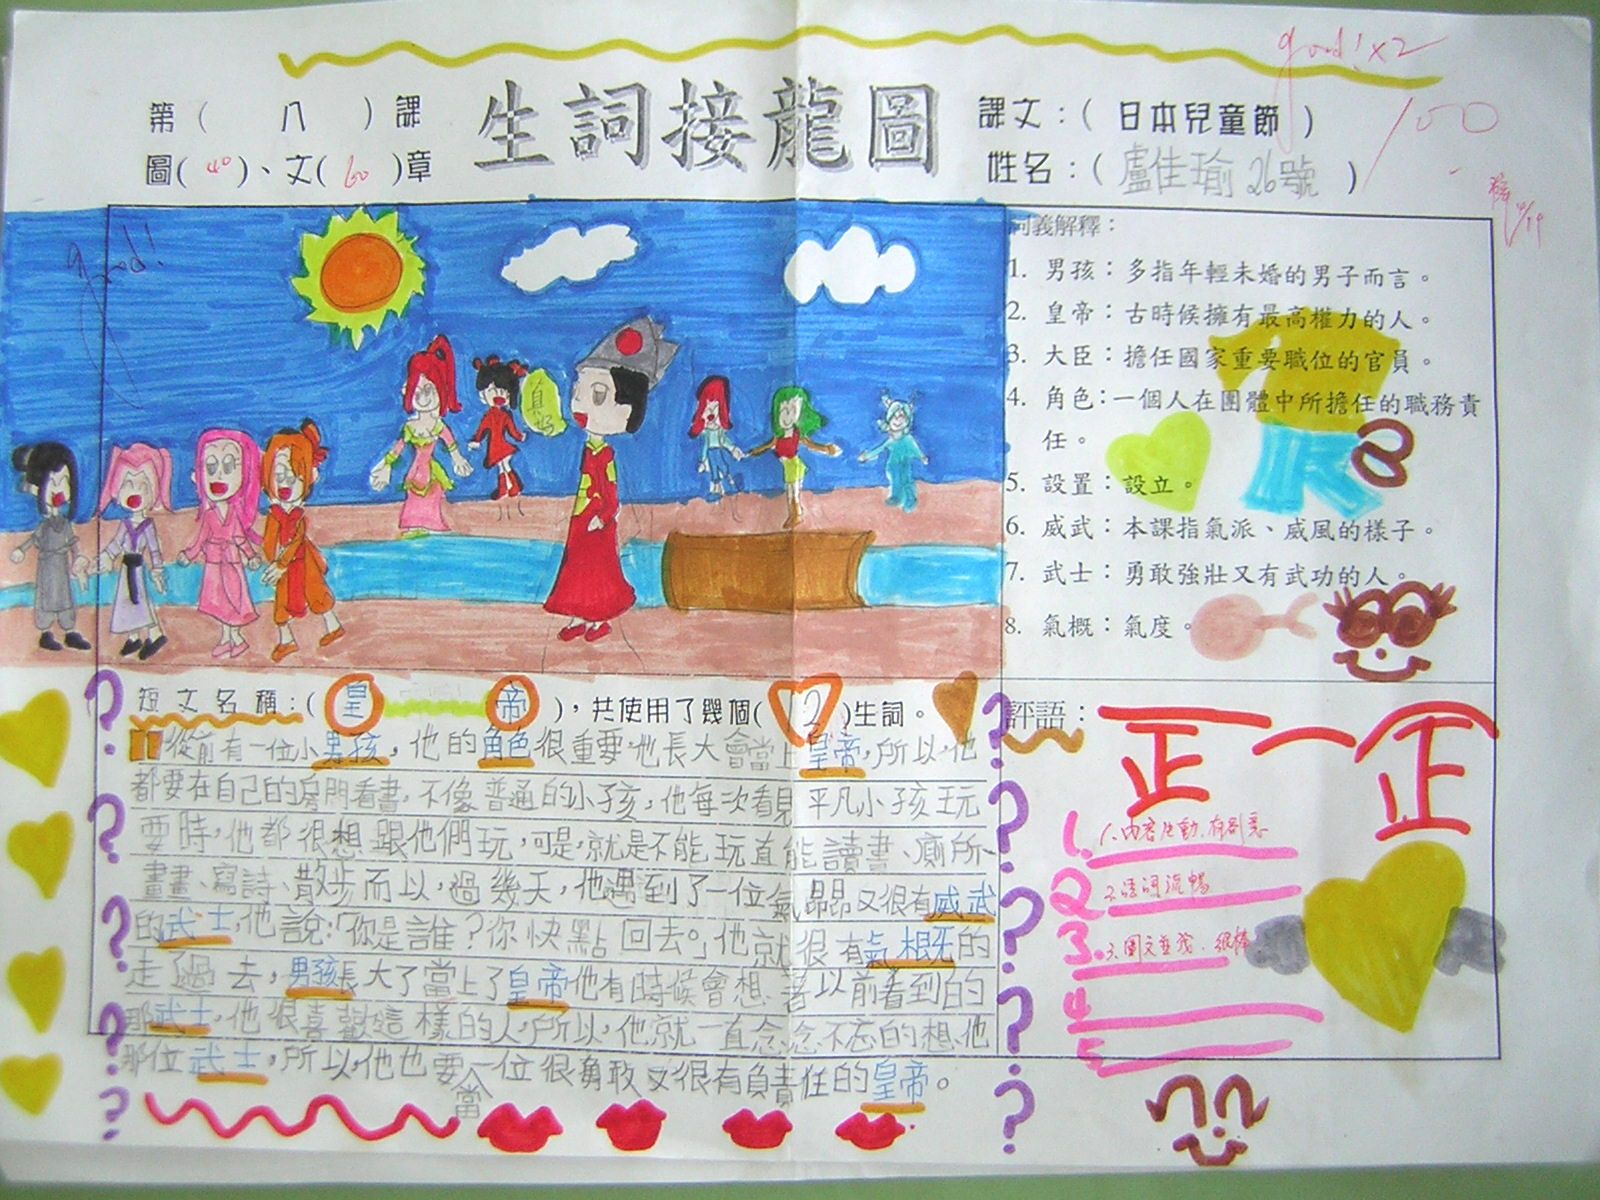 good!x2
100
第（ 八 ）課
生詞接龍圖
課文：（ 日本兒童節 ）
圖( 40 )、文( 60 )章
姓名：（盧佳瑜 26號 ）
good!
真好
詞義解釋：
1. 男孩：多指年輕未婚的男子而言。
2. 皇帝：古時候擁有最高權力的人。
3. 大臣：擔任國家重要職位的官員。
4. 角色：一個人在團體中所擔任的職務責
任。
5. 設置：設立。
6. 威武：本課指氣派、威風的樣子。
7. 武士：勇敢強壯又有武功的人。
8. 氣概：氣度。
短文名稱：( 皇 帝 )，共使用了幾個( 12 )生詞。
從前有一位小男孩，他的角色很重要，他長大會當上皇帝，所以，他
都要在自己的房間看書，不像普通的小孩，他每次看見平凡小孩玩
耍時，他都很想跟他們玩，可是，就是不能玩直能讀書、廁所、
畫畫、寫詩、散步而以，過幾天，他遇到了一位氣昂昂又很有威武
的武士，他說：「你是誰？你快點回去。」他就很有氣概的
走過去，男孩長大了當上了皇帝他有時候會想著以前看到的
那武士，他很喜歡這樣的人，所以，他就一直念念不忘的想他
那位武士，所以，他也要當一位很勇敢又很有負責任的皇帝。
評語：
正一正
1. 1.內容生動、有創意
2 2.語詞流暢
3. 3.圖文並茂、很棒
4
5